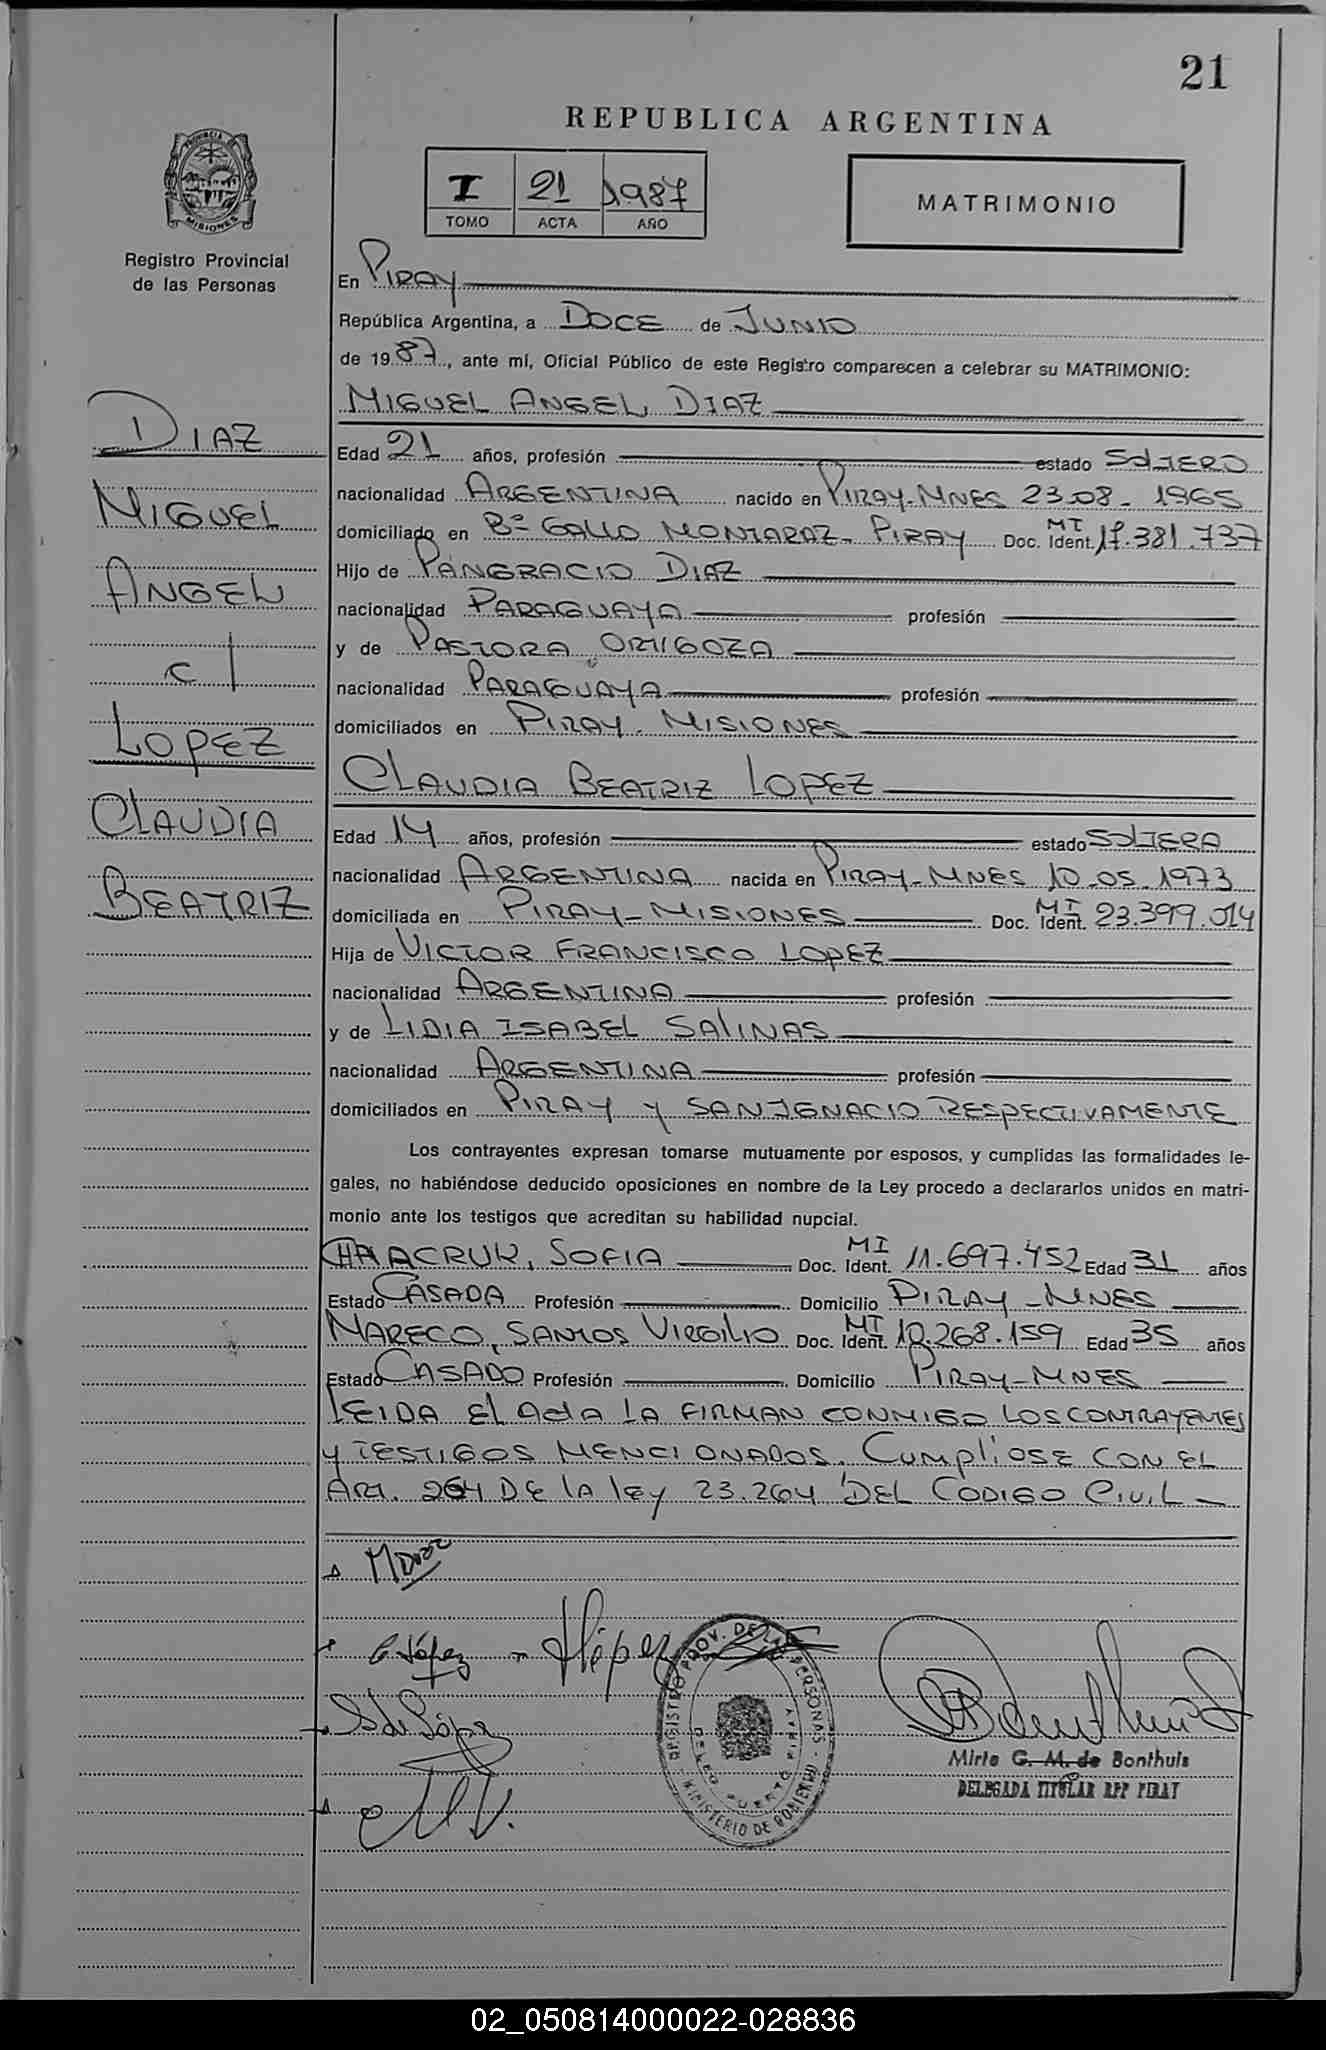 21
REPUBLICA ARGENTINA
I 21 1987
TOMO ACTA AÑO
MATRIMONIO
PROVINCIA DE
MISIONES
Registro Provincial
de las Personas
DIAZ
MIGUEL
ANGEL
c/
LOPEZ
CLAUDIA
BEATRIZ
En PIRAY
República Argentina, a DOCE de JUNIO
de 1987, ante mí, Oficial Público de este Registro comparecen a celebrar su MATRIMONIO:
MIGUEL ANGEL DIAZ
Edad 21 años, profesión estado SOLTERO
nacionalidad ARGENTINA nacido en PIRAY-MNES 23-08-1965
domiciliado en Bº GALLO MONTARAZ- PIRAY Doc. Ident. MI 17.381.737
Hijo de PANGRACIO DIAZ
nacionalidad PARAGUAYA profesión
y de PASTORA ORTIGOZA
nacionalidad PARAGUAYA profesión
domiciliados en PIRAY. MISIONES
CLAUDIA BEATRIZ LOPEZ
Edad 14 años, profesión estado SOLTERA
nacionalidad ARGENTINA nacida en PIRAY-MNES 10-05-1973
domiciliada en PIRAY-MISIONES Doc. Ident. MI 23.399.014
Hija de VICTOR FRANCISCO LOPEZ
nacionalidad ARGENTINA profesión
y de LIDIA ISABEL SALINAS
nacionalidad ARGENTINA profesión
domiciliados en PIRAY Y SAN IGNACIO RESPECTIVAMENTE
Los contrayentes expresan tomarse mutuamente por esposos, y cumplidas las formalidades le-
gales, no habiéndose deducido oposiciones en nombre de la Ley procedo a declararlos unidos en matri-
monio ante los testigos que acreditan su habilidad nupcial.
SOFIA Doc. Ident. MI 11.697.452 Edad 31 años
Estado CASADA Profesión Domicilio PIRAY-MNES
MARECO, SANTOS VIRGILIO Doc. Ident. MI 10.268.159 Edad 35 años
Estado CASADO Profesión Domicilio PIRAY-MNES
LEIDA EL ACTA LA FIRMAN CONMIGO LOS CONTRAYENTES
Y TESTIGOS MENCIONADOS. CUMPLIOSE CON EL
ART. 264 DE LA LEY 23.264 DEL CODIGO CIVIL-
M Diaz
C. López
S de López
REGISTRO PROV. DE LAS PERSONAS - MINISTERIO DE GOBIERNO
DELEG. PUERTO PIRAY
Mirte G. M. de Bonthuis
DELEGADA TITULAR RPP PIRAY
02_050814000022-028836